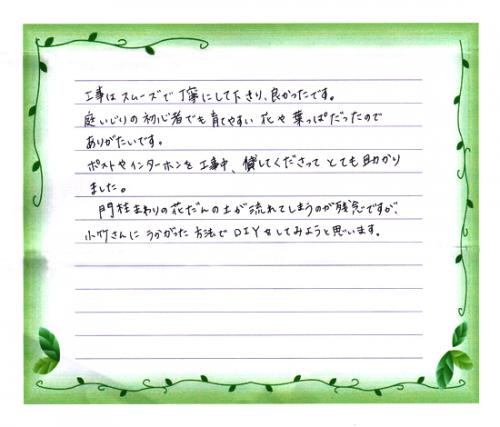 工事はスムーズで丁寧にして下さり、良かったです。
庭いじりの初心者でも育てやすい花や葉っぱだったので
ありがたいです。
ポストやインターホンを工事中、貸してくださってとても助かり
ました。
門柱まわりの花だんの土が流れてしまうのが残念ですが、
小竹さんにうかがった方法でDIYをしてみようと思います。